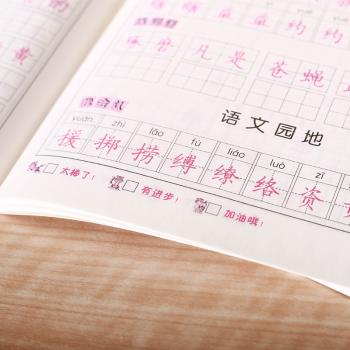 的
黄
约 约
琢 磨 凡 是 苍 蝇
语文园地
yuán zhì lāo fù liáo luò zī
援 掷 捞 缚 缭 络 资
太棒了! 有进步! 加油哦!